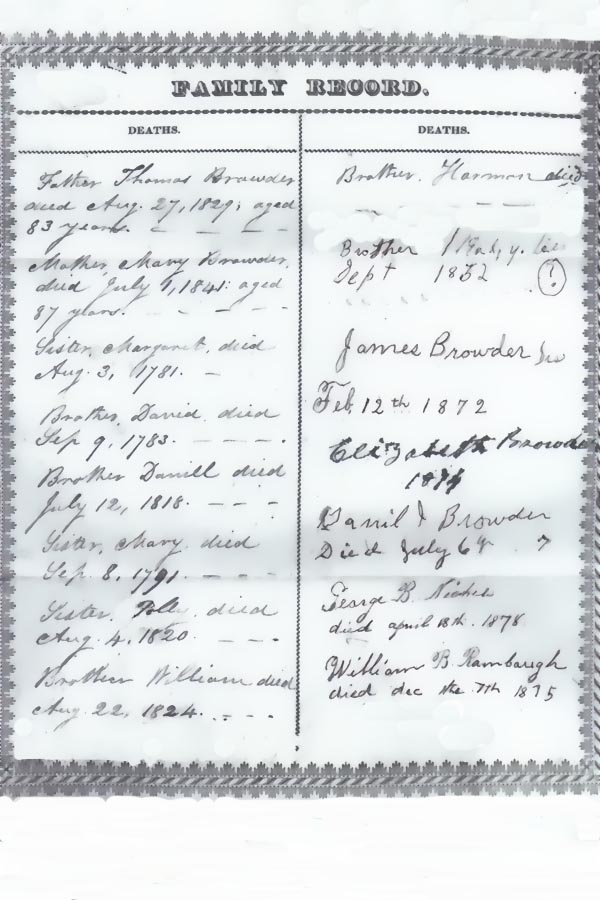 FAMILY RECORD.
DEATHS.
Father Thomas Browder
died Aug. 27, 1829; aged
83 years. — — — —
Mother, Mary Browder,
died July 1, 1841: aged
87 years. — — — —
Sister, Margaret, died
Aug. 3, 1781. —
Brother, David, died
Sep 9, 1783. — — — —.
Brother Daniell died
July 12, 1818. — — —
Sister, Mary, died
Sep. 8, 1791. — — —
Sister, Polly, died
Aug. 4, 1820. — — —.
Brother William died
Aug. 22, 1824. — — —.
DEATHS.
Brother, Harmon died
— —
Brother
Sept 1832 (?)
James Browder
Feb 12th 1872
Elizabeth Browder
Browder
Died July 6
George B.
died april 18th. 1878
William B. Rambaugh
died dec the 7th 1875